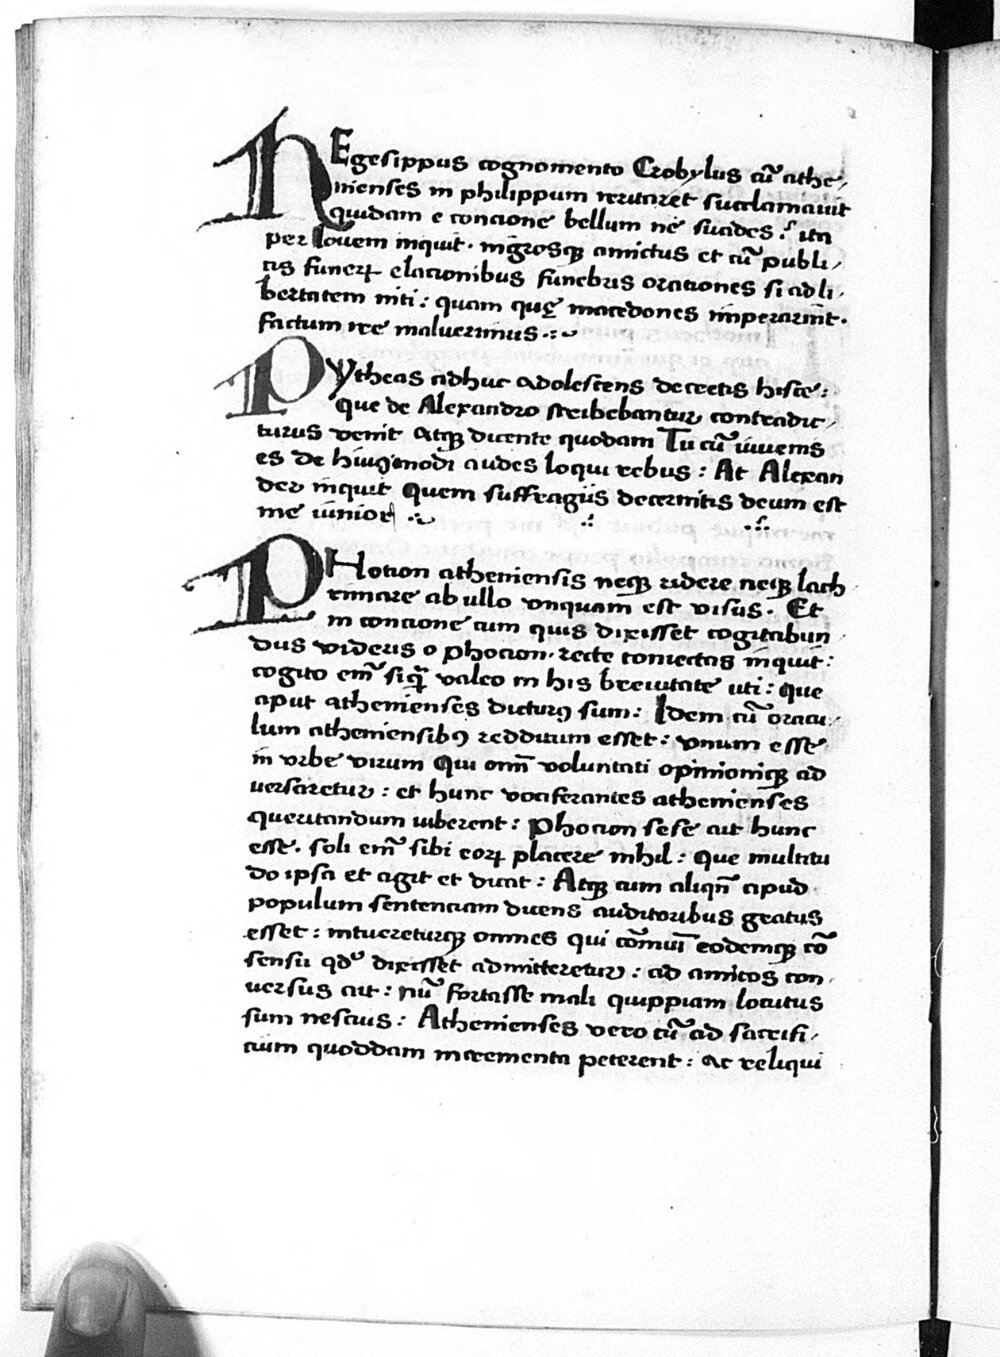 HEgesippus cognomento Crobylus cū athe,
nienses in philippum irritaret succlamauit
quidam e concione bellum ne suades.ˢ ita
per Iouem inquit. nigrosqꝫ amictus et cū publi,
cis funerꝝ elacionibus funebris orationes si ad li,
bertatem niti: quam quę macedones imperarint.
factum ire maluerimus
PYtheas adhuc adolescens decretis hisce:
que de Alexandro scribebantur contradic,
turus venit Atqꝫ dicente quodam Tu cū iuuenis
es de huiꝰmodi audes loqui rebus: At Alexan
der inquit Quem suffragiis decernitis deum est
me iunior
PHocion atheniensis neqꝫ ridere neqꝫ lach
rimare ab ullo vnquam est visus. Et
in concione cum quis dixisset cogitabun,
dus videris o phocion. recte coniectas inquit:
cogito em̄ siq̄ valeo in his breuitate uti: que
aput athenienses dicturꝰ sum: Idem cū oracu,
lum atheniensibꝰ redditum esset: vnum esse
in vrbe virum Qui om̄ voluntati opinioniqꝫ ad
uersaretur: et hunc vociferantes athenienses
queritandum iuberent: Phocion sese ait hunc
esse. soli em̄ sibi eorꝝ placere nihil: Que multitu
do ipsa et agit et dicat: Atqꝫ cum aliqn̄ apud
populum sentenciam dicens auditoribus gratus
esset: intuereturqꝫ omnes qui cōmuī eodemqꝫ cō
sensu qdᵒ dixisset admitteretur: ad amicos con,
uersus ait: nū fortasse mali quippiam locutus
sum nescius: Athenienses vero cū ad sacrifi,
cium quoddam incrementa peterent: ac reliqui